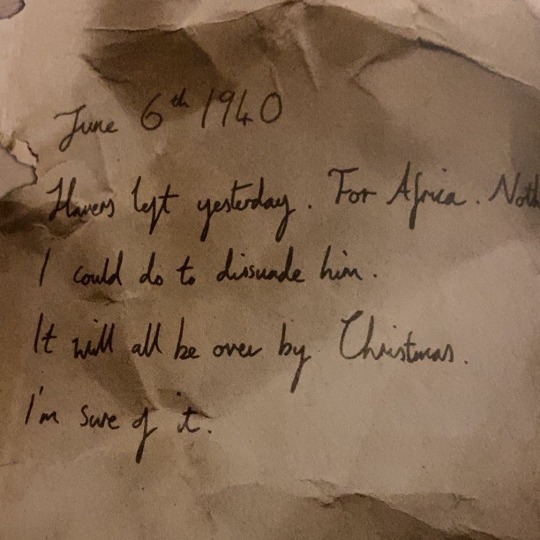 June 6th 1940
Havers left yesterday. For Africa. Noth
I could do to dissuade him.
It will all be over by Christmas.
I'm sure of it.